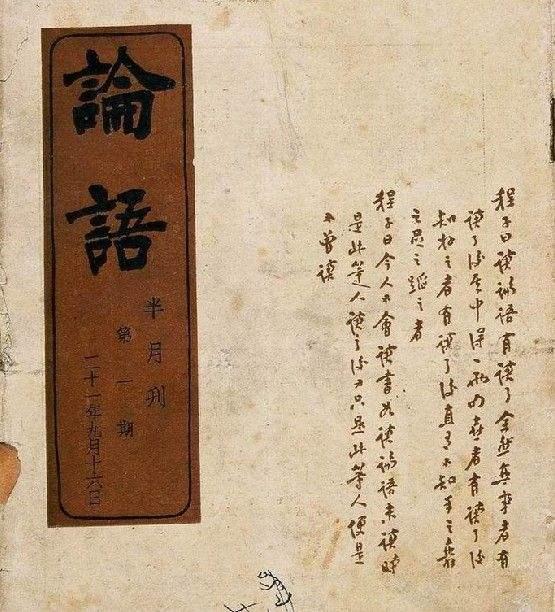 論語
半月刊
第一期
二十一年九月十六日
程子曰讀論語有讀了全然無事者有
讀了後其中得一兩句喜者有讀了後
知好之者有讀了後直有不知手之舞
之足之蹈之者
程子曰今人不會讀書如讀論語未讀時
是此等人讀了後又只是此等人便是
不曾讀